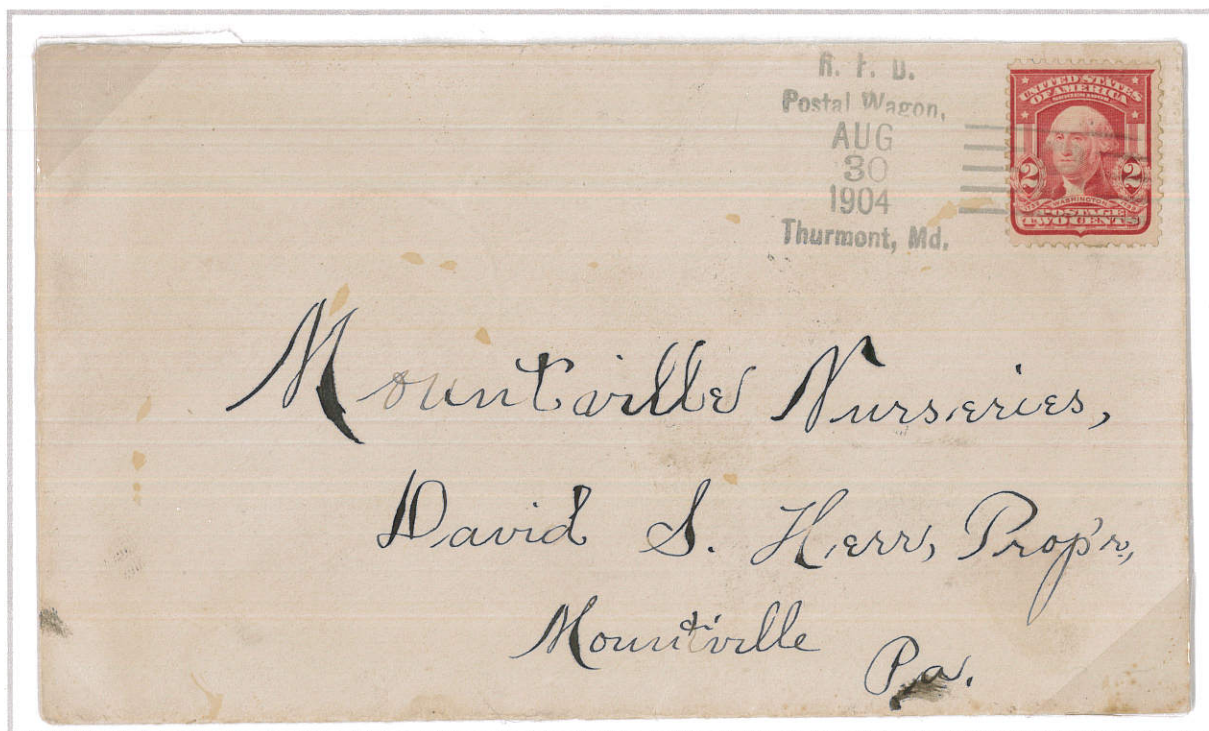 R. F. D.
Postal Wagon,
AUG
30
1904
Thurmont, Md.
UNITED STATES
OF AMERICA
SERIES 1902
2 2
WASHINGTON
POSTAGE
TWO CENTS
Mountville Nurseries,
David S. Herr, Prop'r,
Mountville
Pa.